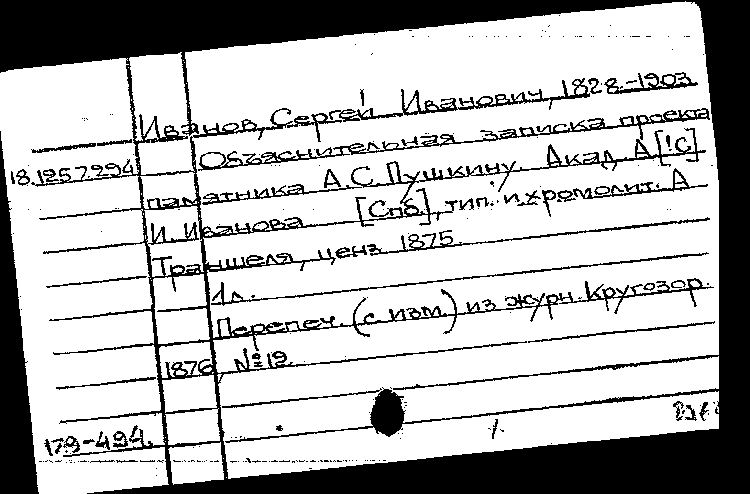 Иванов, Сергей Иванович, 1828-1903
Объяснительная записка проекта
18.1257.294
памятника А.С. Пушкину. Акад. А [!С]
И. Иванова [Спб.], тип. и хромолит. А
Траншеля, ценз 1875.
1л.
Перепеч. (с изм.) из журн. Кругозор.
1876, №12.
179-494.